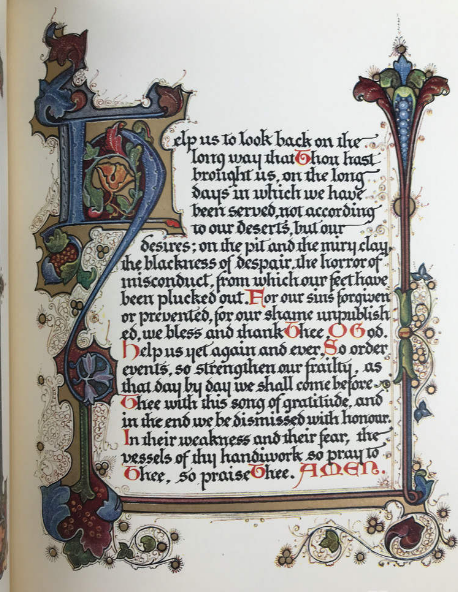 Help us to look back on the
long way that Thou hast
brought us, on the long
days in which we have
been served, not according
to our deserts, but our
desires; on the pit and the miry clay,
the blackness of despair, the horror of
misconduct, from which our feet have
been plucked out. For our sins forgiven
or prevented, for our shame unpublish
ed, we bless and thank Thee, O God.
Help us yet again and ever. So order
events, so strengthen our frailty, as
that day by day we shall come before
Thee with this song of gratitude, and
in the end we be dismissed with honour.
In their weakness and their fear, the
vessels of thy handiwork so pray to
Thee, so praise Thee. AMEN.